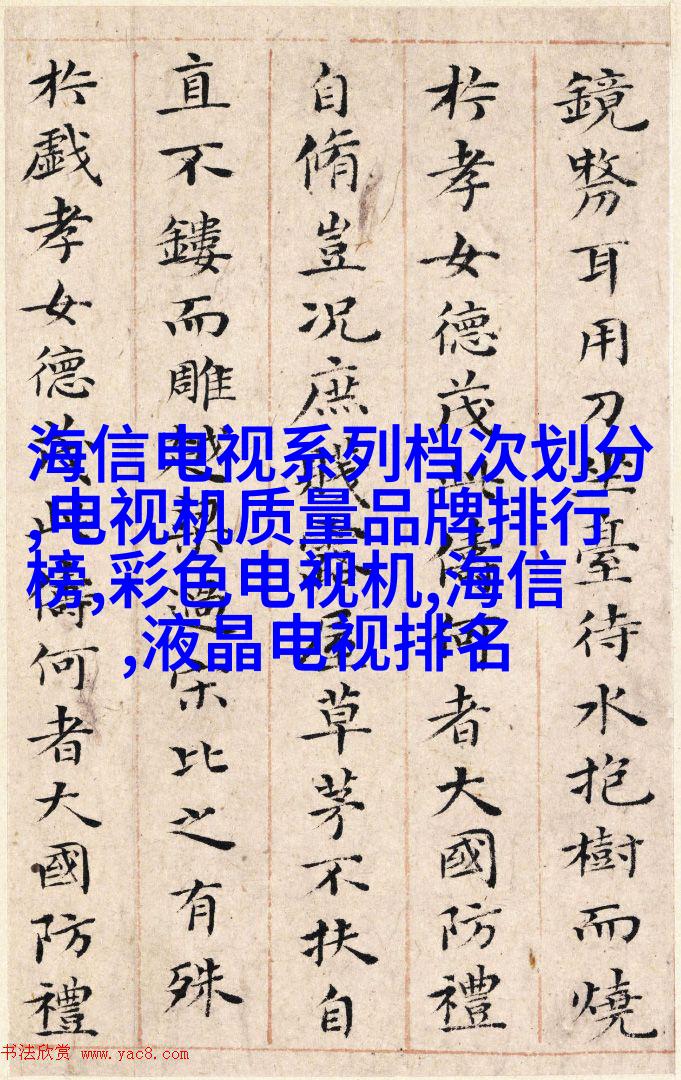 鏡耳用刀臺待水抱樹而燒
扵孝女德茂此儔何者大國防禮
自脩豈況庶賤露屋草茅不扶自
直不鏤而雕越梁過宋比之有殊
扵戲孝女德茂此儔何者大國防禮
海信电视系列档次划分
,电视机质量品牌排行
榜,彩色电视机,海信
,液晶电视排名
书法欣赏 www.yac8.com